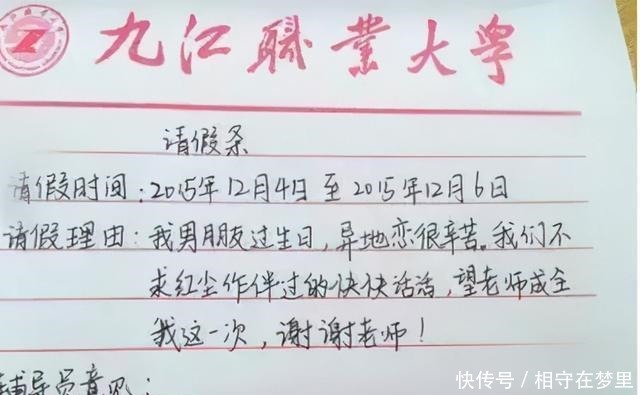 九江职业大学
请假条
请假时间:2015年12月4日至2015年12月6日
请假理由:我男朋友过生日,异地恋很辛苦。我们不
求红尘作伴过的快快活活,望老师成全
我这一次,谢谢老师!
辅导员意见:
快传号/相守在梦里